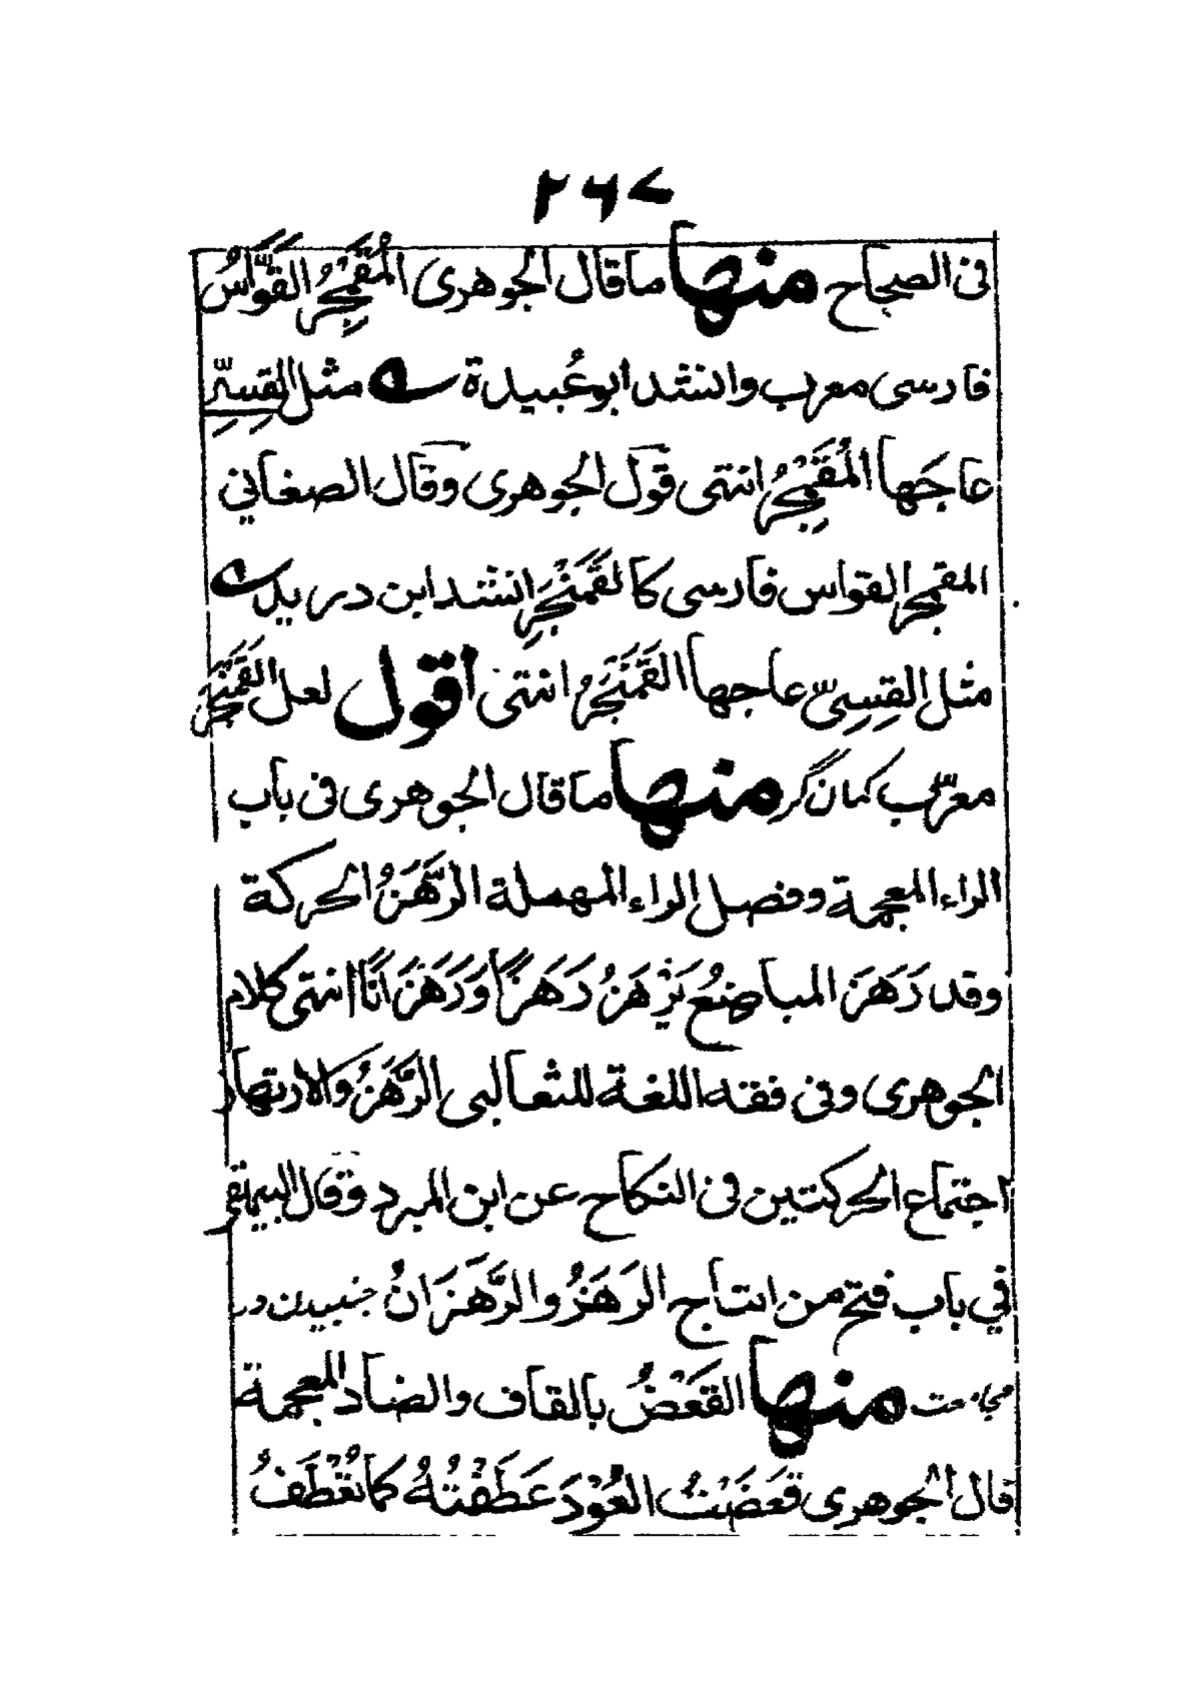 ٢٦٧
فى الصحاح منها ما قال الجوهرى المُقَمْجِرُ القَوَّاسُ
فارسى معرب وانشد ابو عُبيدة ـه مثل القِسِىّ
عاجَها المُقَمْجِرُ انتهى قول الجوهرى وقال الصغاني
المقمجر القواس فارسى كالقَمَنْجَرِ انشد ابن دريد ـه
مثل القِسِىّ عاجها القَمَنْجَرُ انتهى اقول لعل القَمَنْجَر
معرّب كمان گر منها ما قال الجوهرى فى باب
الزاء المعجمة وفصل الراء المهملة الرَّهْزُ الحركة
وقد رَهَزَ المباضعُ يَرْهَزُ رَهْزًا وَرَهَزَانًا انتهى كلام
الجوهرى وفى فقه اللغة للثعالبى الرَّهْزُ والارتهاز
اجتماع الحركتين فى النكاح عن ابن المبرد وقال البيهقى
في باب فتح من انتاج الرَهْزُ والرَّهَزَانُ جنبيدن در
مجامعت منها القَعْضُ بالقاف والضاد المعجمة
قال الجوهرى قَعَضْتُ العُوْدَ عَطَفْتُهُ كما تُعْطَفُ